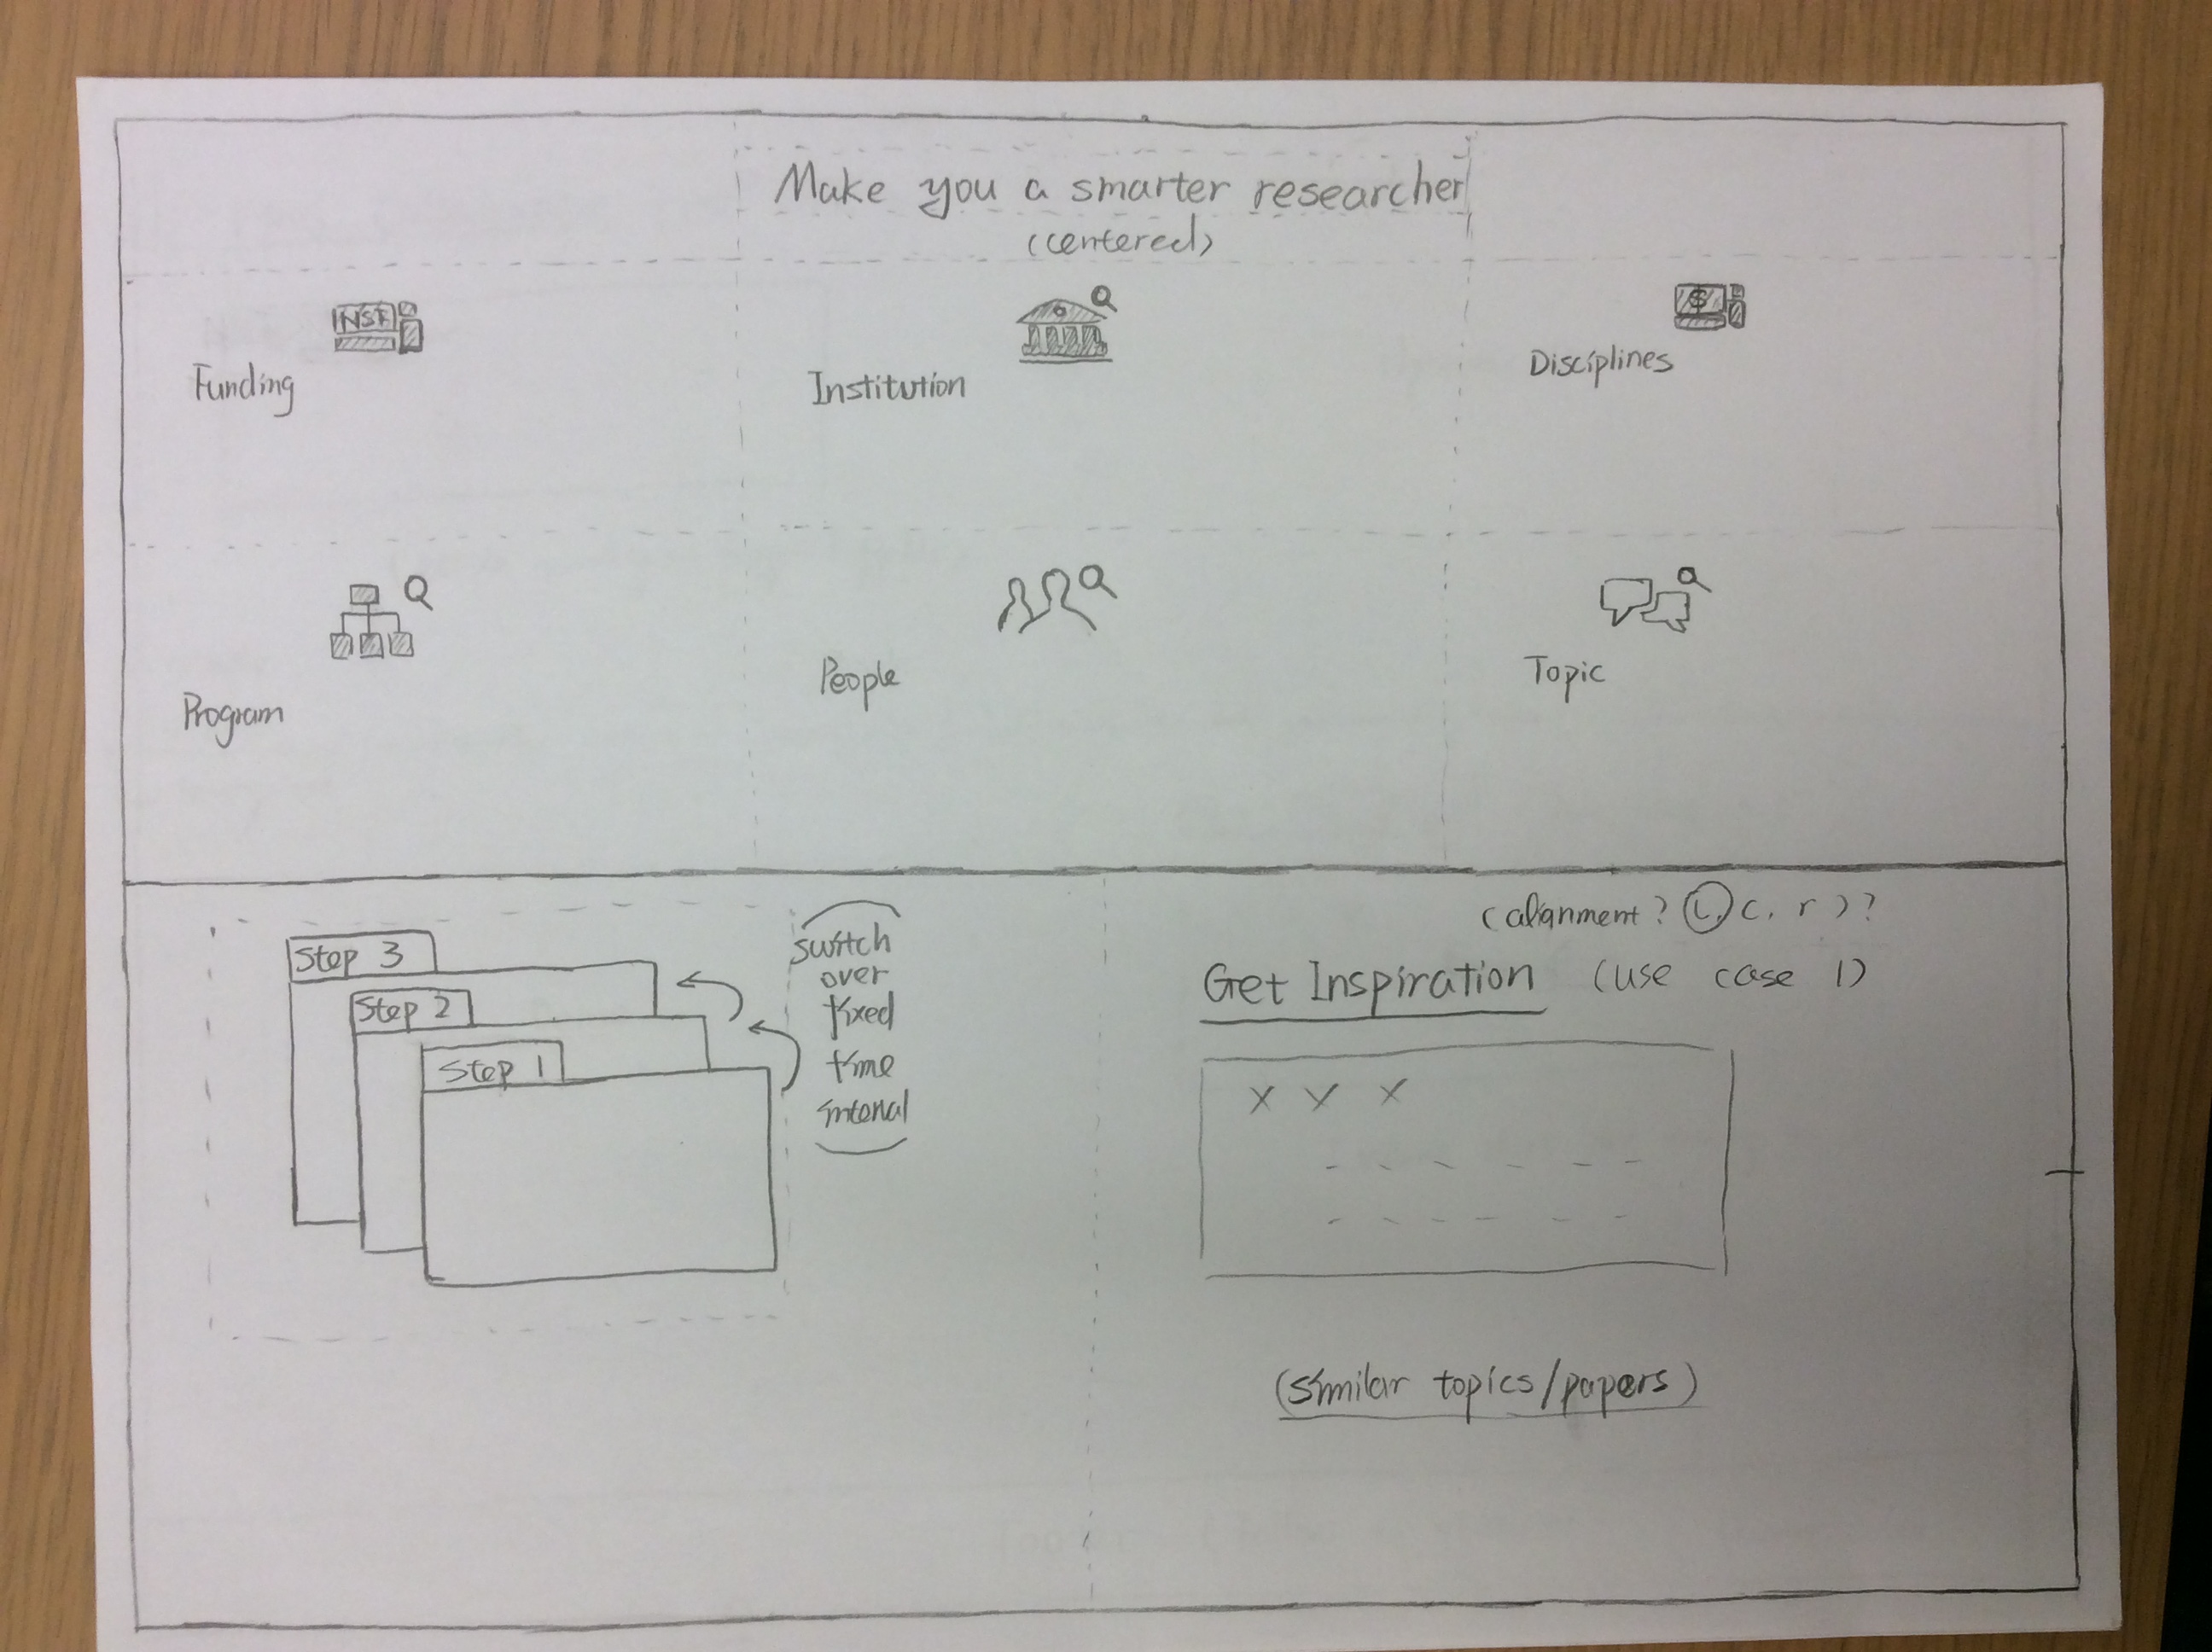 Make you a smarter researcher
(centered)
Funding
NSF
Institution
Disciplines
$
Program
People
Topic
Step 3
Step 2
Step 1
(switch
over
fixed
time
interval)
(alignment? (L) c, r)?
Get Inspiration (use case 1)
X Y X
(Similar topics/papers)